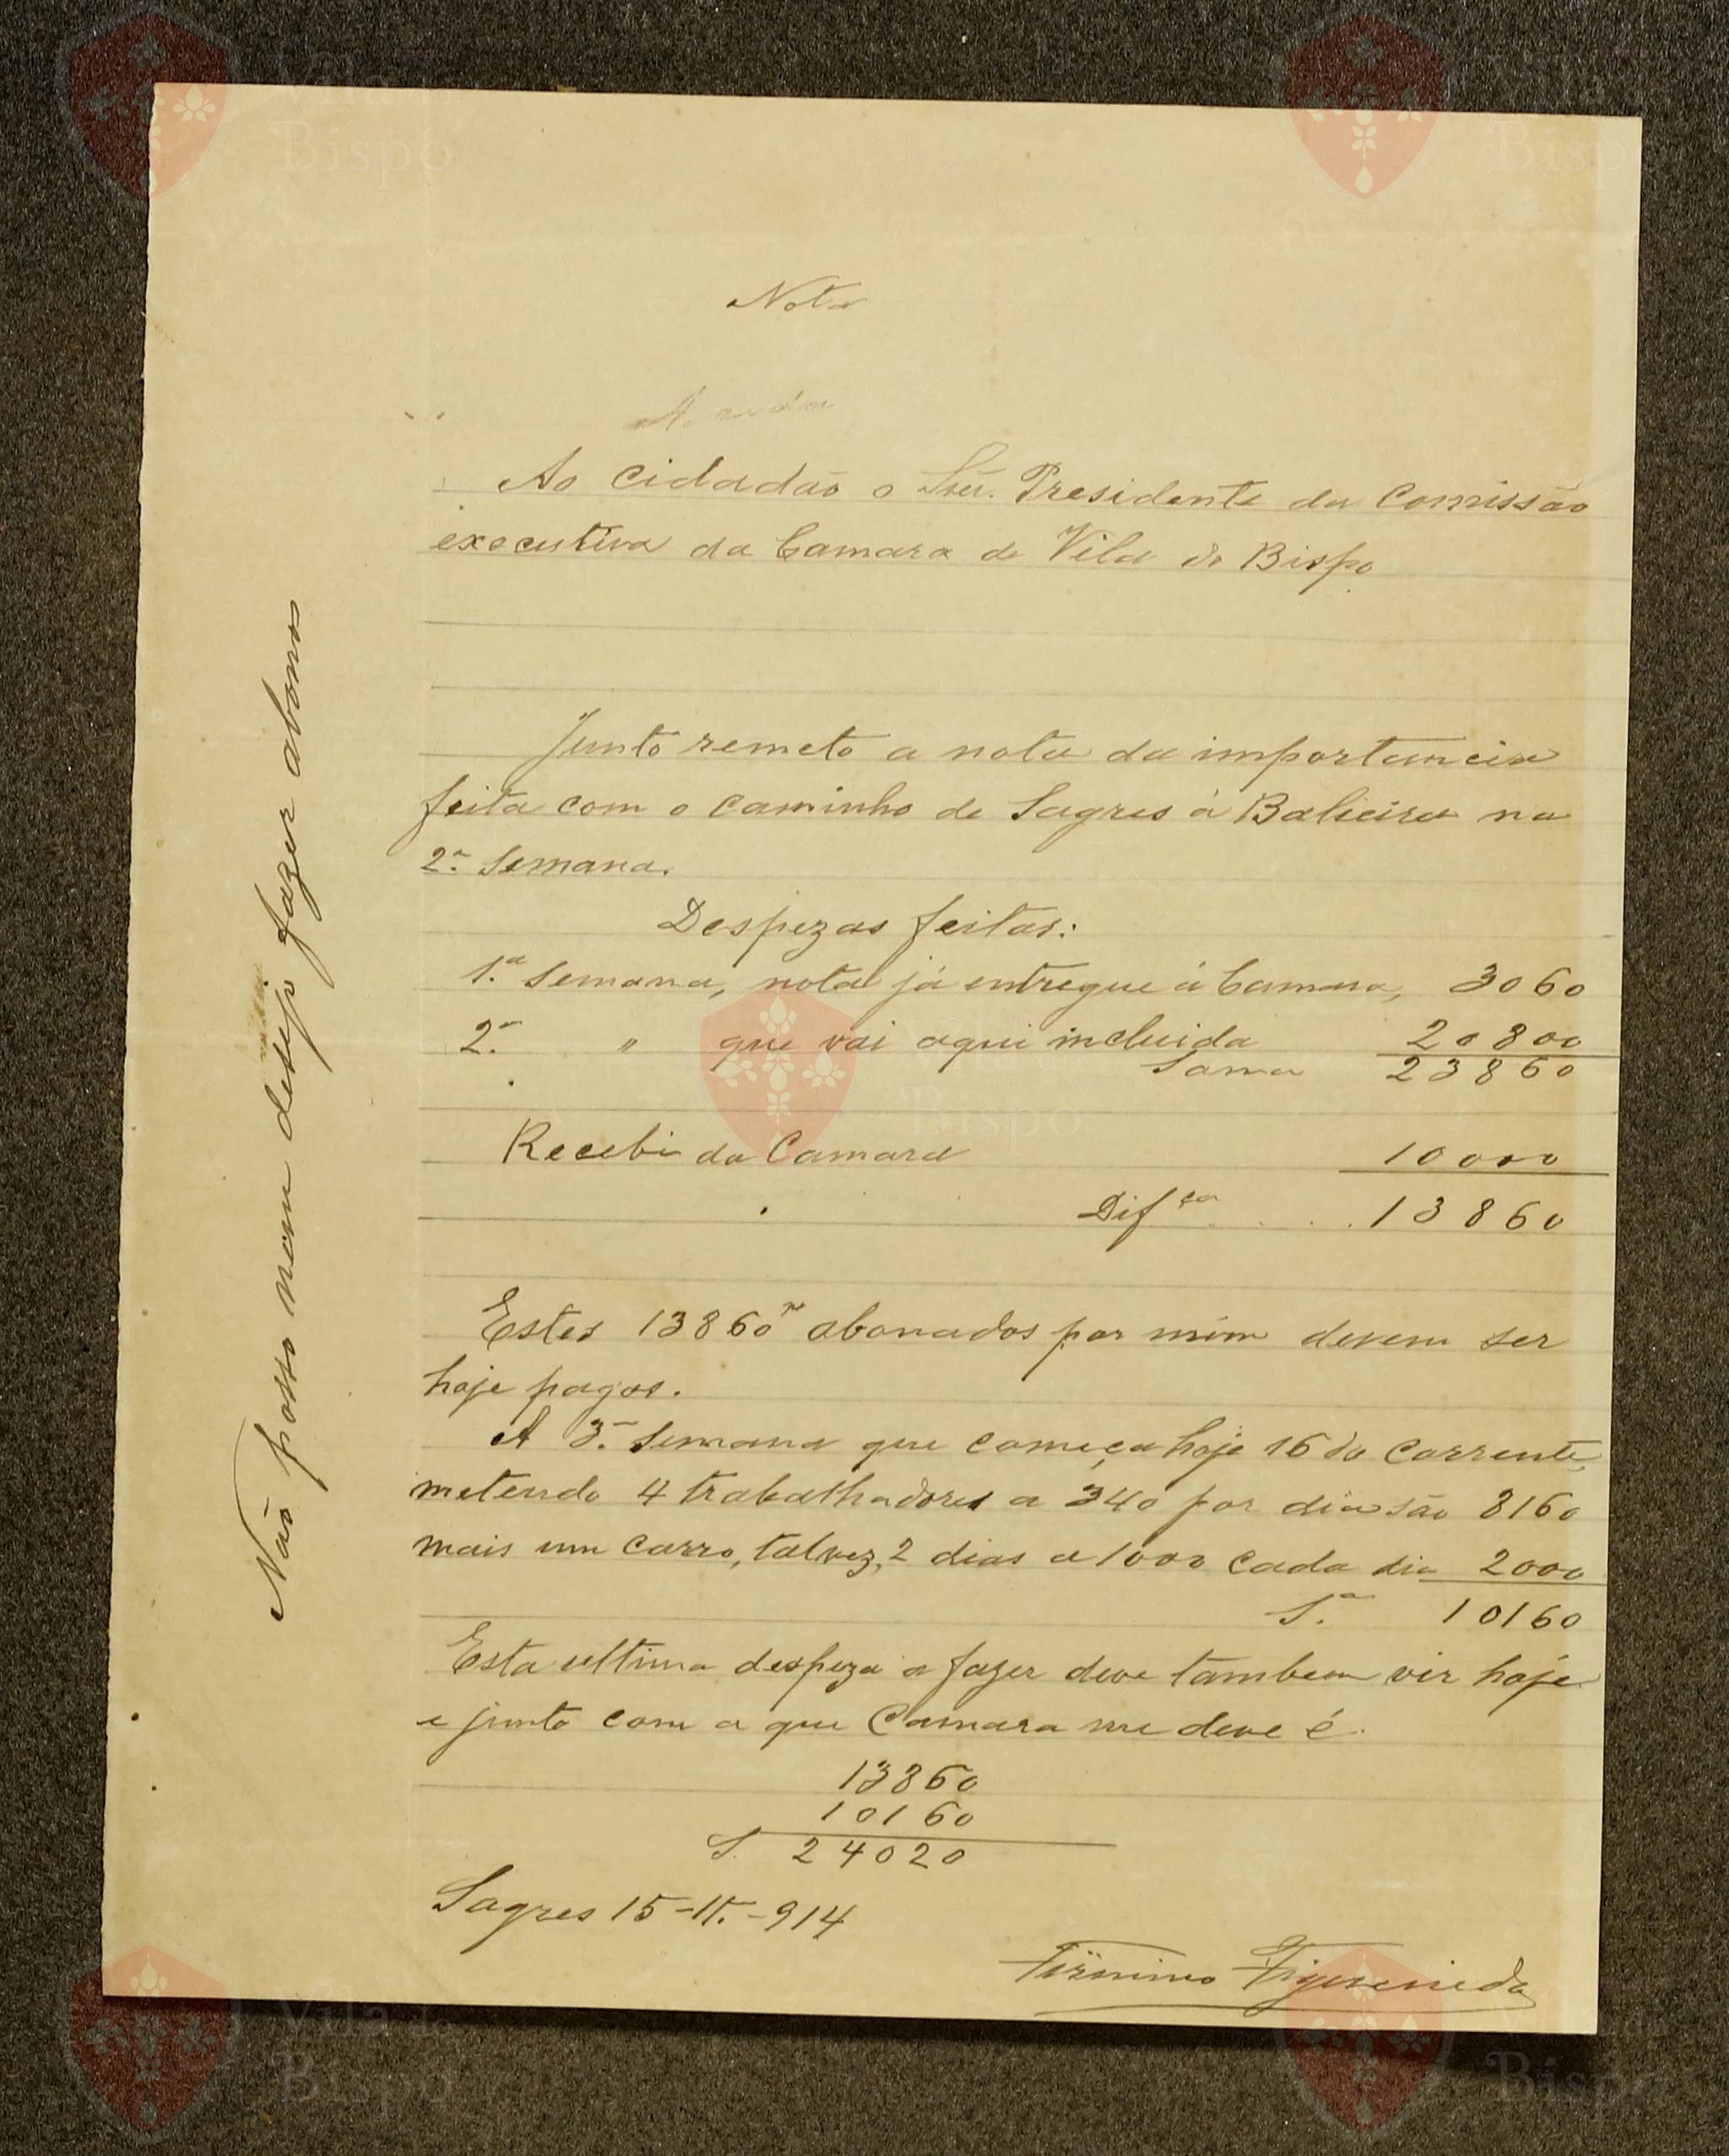 Nota
Ao Cidadão o Snr. Presidente da Comissão
executiva da Camara de Vila do Bispo
Junto remeto a nota da importancia
feita com o caminho de Sagres á Balieira na
2.ª Semana.
Despezas feitas:
1.ª Semana, nota já entregue á Camara, 3060
2.ª " que vai aqui incluida 20800
Soma 23860
Recebi da Camara 10000
Dif.ça . . . . 13860
Estes 13860 rs abonados por mim devem ser
hoje pagos.
A 3.ª Semana que começa hoje 16 do corrente,
metendo 4 trabalhadores a 340 por dia são 8160
mais um carro, talvez, 2 dias a 1000 cada dia 2000
S.ª 10160
Esta ultima despeza a fazer deve tambem vir hoje
e junto com a que Camara me deve é.
13860
10160
S. 24020
Sagres 15-II.-914
Firmino Figueiredo
Não posso nem desejo fazer abonos
Vila do
Bispo